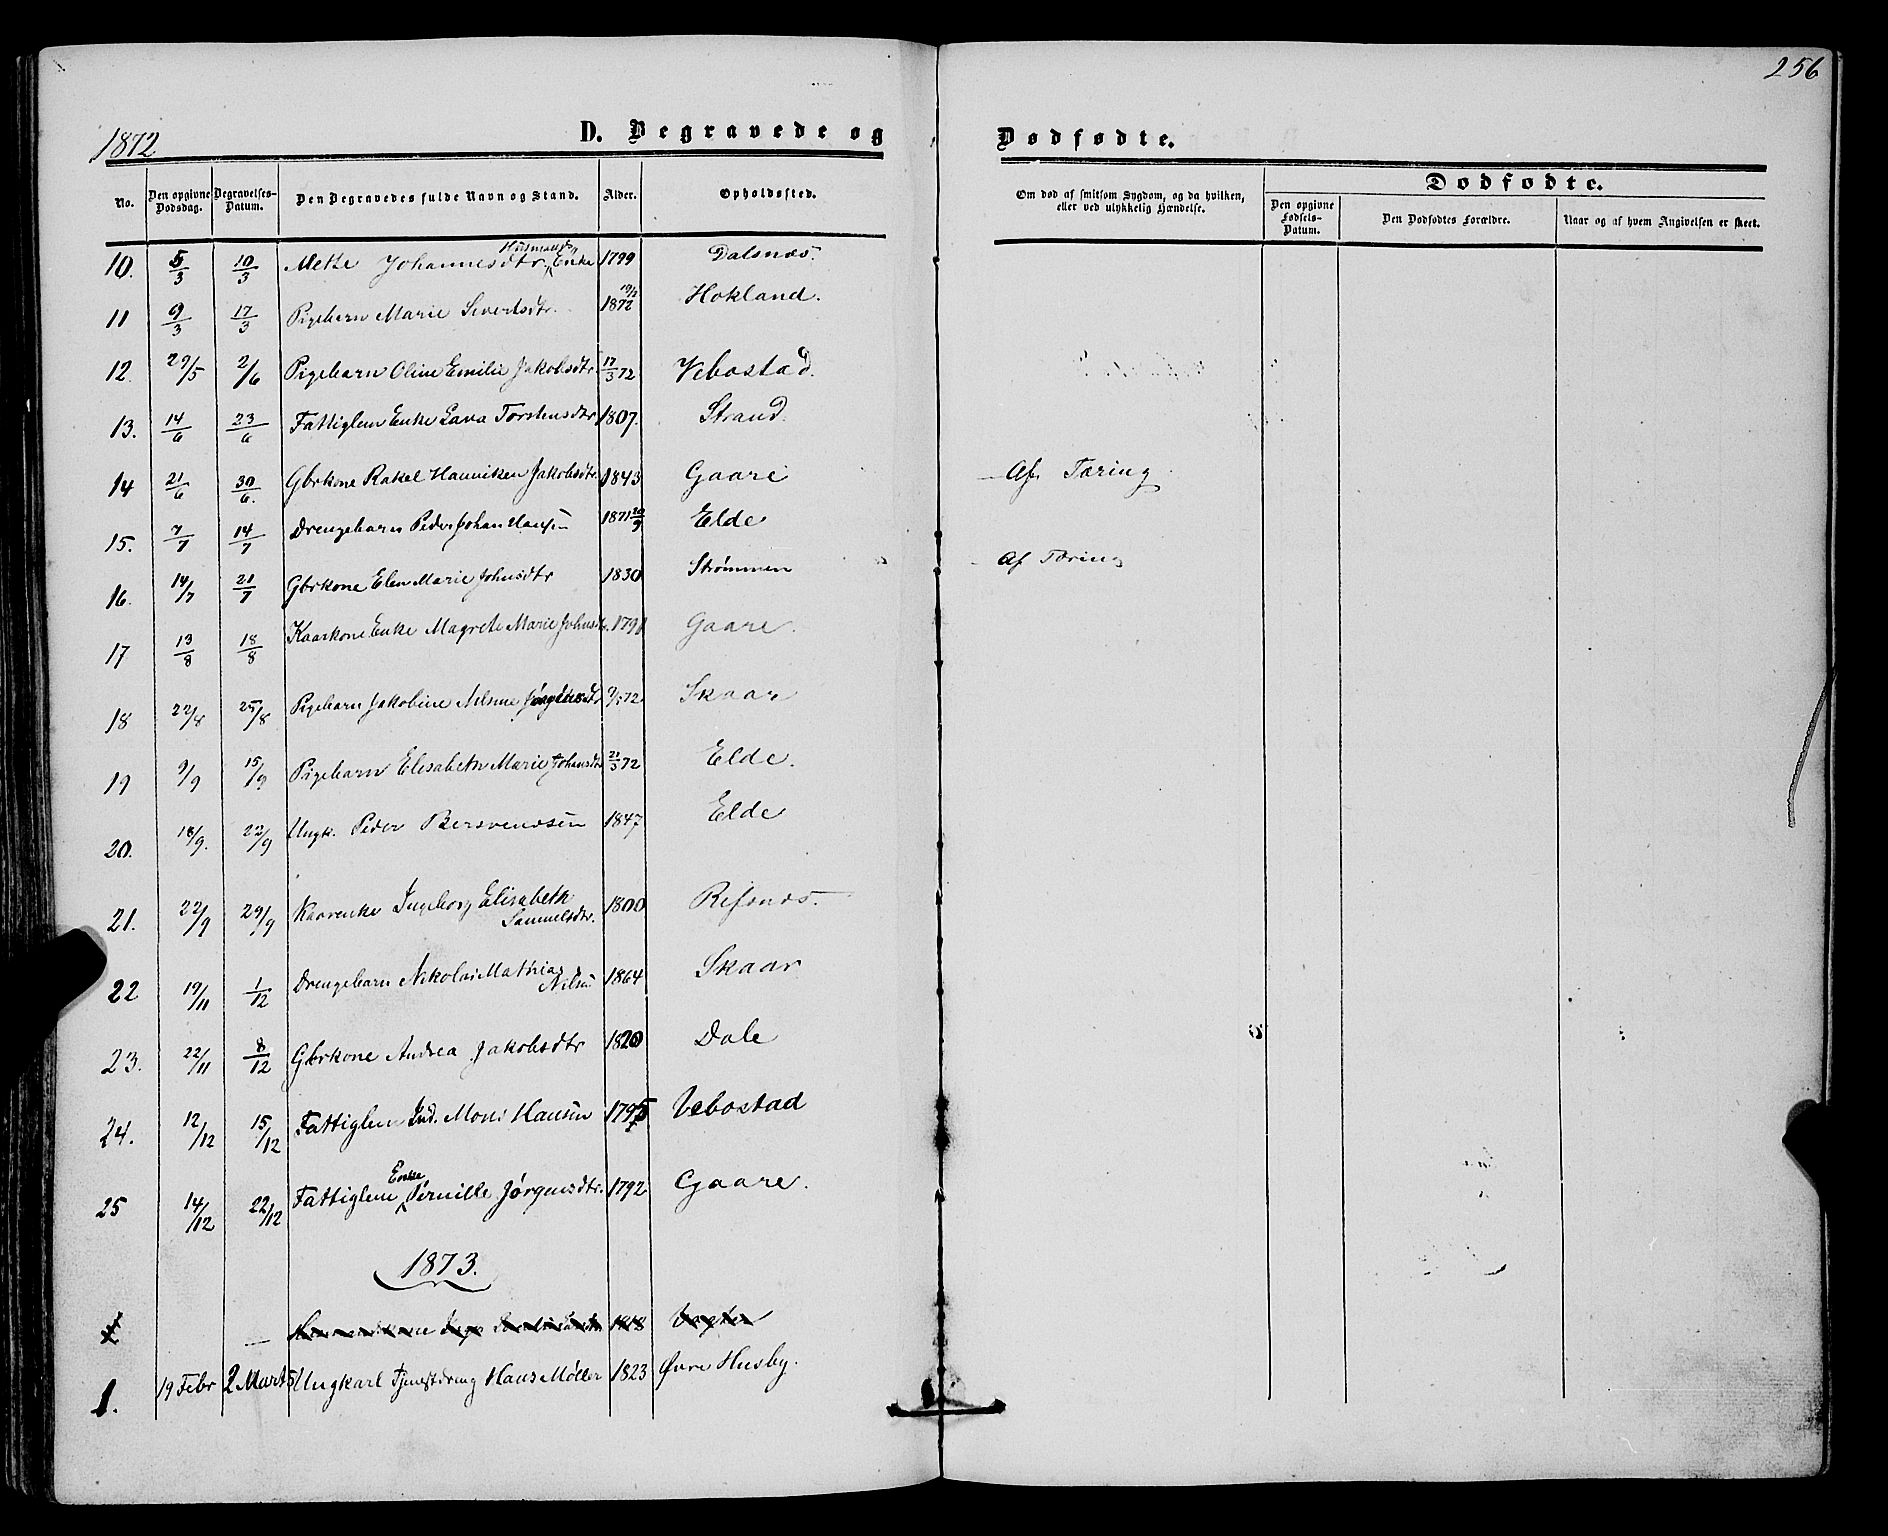 256
1872
D. Begravede og
Dødfødte.
No.
Den opgivne Dødsdag.
Begravelses-Datum.
Den Begravedes fulde Navn og Stand.
Alder.
Opholdssted.
Om død af smitsom Sygdom, og da hvilken, eller ved ulykkelig Hændelse.
Dødfødte.
Den opgivne Fødsels-Datum.
Den Dødfødtes Forældre.
Naar og af hvem Angivelsen er skeet.
10. 5/3 10/3 Mette Johannesdtr. Husmands Enke 1799 Dalsnæs.
11 9/3 17/3 Pigebarn Marie Sivertsdtr. 1872 Hokland.
12. 29/5 2/6 Pigebarn Oline Emilie Jakobsdtr. 17/3 72 Vebostad.
13. 14/6 23/6 Fattiglem Enke Lava Torstensdtr 1807. Strand.
14 21/6 30/6. Gbrkone Rakel Hanniken Jakobsdtr. 1843 Gaare Af Tæring
15. 7/7 14/7 Drengebarn Peder Johan Hansen 1871 20/9 Elde
16. 14/7 21/7 Gbrkone Elen Marie Johnsdtr 1830 Strømmen Af Tæring
17 13/8 18/8 Kaarkone Enke Magrete Marie Johnsdtr. 1791 Gaare.
18 22/8 25/8 Pigebarn Jakobine Nilsine 72 Skaar
19 9/9 15/9 Pigebarn Elisabeth Marie Johansdtr 21/3 72 Elde.
20. 18/9. 22/9 Ungk. Peder Bersvendsen 1847 Elde
21. 22/9 29/9 Kaarenke Ingeborg Elisabeth Samuelsdtr. 1800 Refsnæs.
22 19/11 1/12 Drengebarn Nikolai Mathias Nilsen 1864 Skaar
23. 22/11 8/12 Gbrkone Andrea Jakobsdtr 1820 Dale
24. 12/12 15/12 Fattiglem Ind. Mons Hansen 1795 Vebostad
25 14/12 22/12 Fattiglem Enke Pernille Jørgensdtr. 1792 Gaare.
1873.
1818
1. 19 Febr 2 Marts Ungkarl Tjenestdreng Hans Møller 1823 Øvre Husby.